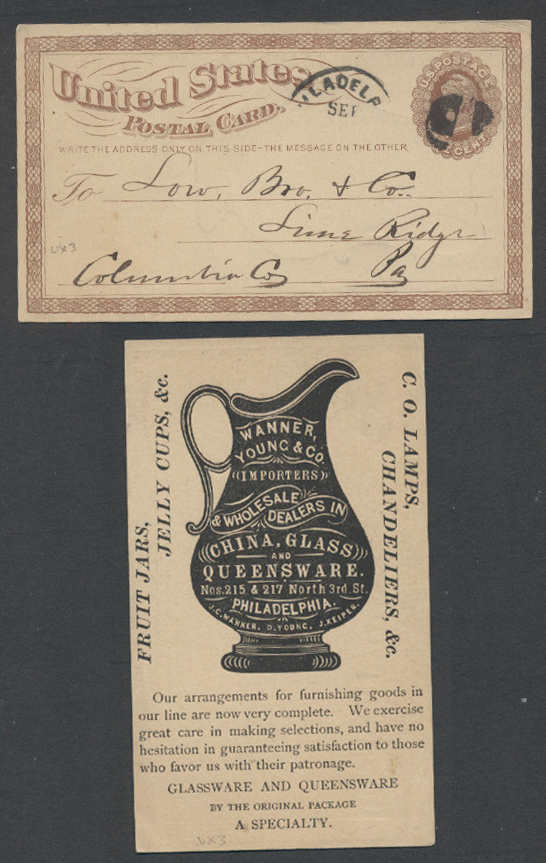 United States
POSTAL CARD.
WRITE THE ADDRESS ONLY ON THIS SIDE–THE MESSAGE ON THE OTHER
ILADELP
SEP
U.S. POSTAGE
CENT
To Low, Bro. & Co.
Lime Ridge
Columbia Co Pa
UX3
FRUIT JARS,
JELLY CUPS, &c.
C. O. LAMPS,
CHANDELIERS, &c.
WANNER,
YOUNG & CO.
IMPORTERS
& WHOLESALE
DEALERS IN
CHINA, GLASS
AND
QUEENSWARE.
Nos. 215 & 217 North 3rd. St.
PHILADELPHIA.
J.C. WANNER. D. YOUNG. J. KEIPER.
Our arrangements for furnishing goods in
our line are now very complete. We exercise
great care in making selections, and have no
hesitation in guaranteeing satisfaction to those
who favor us with their patronage.
GLASSWARE AND QUEENSWARE
BY THE ORIGINAL PACKAGE
A SPECIALTY.
UX3